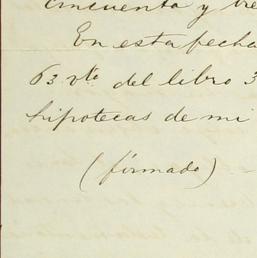 cincuenta y tre
En esta fecha
63 vto del libro 3
hipotecas de mi
(firmado)